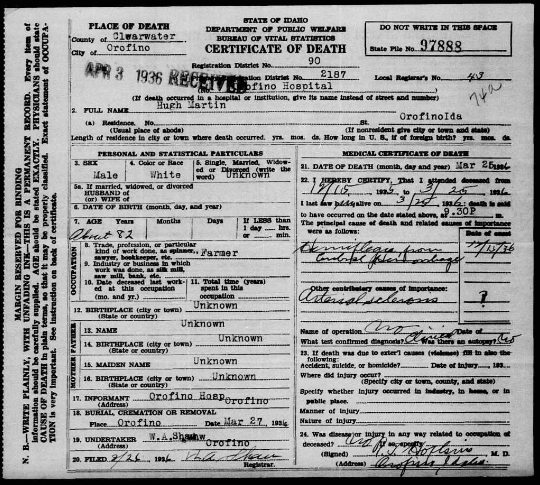 STATE OF IDAHO
DEPARTMENT OF PUBLIC WELFARE
BUREAU OF VITAL STATISTICS
CERTIFICATE OF DEATH
PLACE OF DEATH
County of Clwarwater
City of Orofino
DO NOT WRITE IN THIS SPACE
State File No. 97888
APR 3 1936 RECEIVED
Registration District No. 90
Registration District No. 2187
Local Registrar's No. 43
Orofino Hospital
(If death occurred in a hospital or institution, give its name instead of street and number)
2. FULL NAME Hugh Martin
(a) Residence. No. St. OrofinoIda
(Usual place of abode) (If nonresident give city or town and state)
Length of residence in city or town where death occurred. yrs. mos. ds. How long in U. S., if of foreign birth? yrs. mos. ds.
PERSONAL AND STATISTICAL PARTICULARS
3. SEX 4. Color or Race 5. Single, Married, Widowed or Divorced (write the word)
Male White Unknown
5a. If married, widowed, or divorced
HUSBAND of
(or) WIFE of
6. DATE OF BIRTH (month, day, and year)
7. AGE Years Months Days If LESS than 1 day hrs. or min.
About 82
OCCUPATION
8. Trade, profession, or particular kind of work done, as spinner, sawyer, bookkeeper, etc. Farmer
9. Industry or business in which work was done, as silk mill, saw mill, bank, etc.
10. Date deceased last worked at this occupation (mo. and yr.)
11. Total time (years) spent in this occupation
12. BIRTHPLACE (city or town) Unknown
(State or country)
MOTHER FATHER
13. NAME Unknown
14. BIRTHPLACE (city or town) Unknown
(State or country)
15. MAIDEN NAME Unknown
16. BIRTHPLACE (city or town) Unknown
(State or country)
17. INFORMANT Orofino Hosp
(Address) Orofino
18. BURIAL, CREMATION OR REMOVAL
Place Orofino Date Mar 27, 1936
19. UNDERTAKER W.A.Shaw
(Address) Orofino
20. FILED 3/26 1936 W.A. Shaw
Registrar.
MEDICAL CERTIFICATE OF DEATH
21. DATE OF DEATH (month, day and year) Mar 25 1936
22. I HEREBY CERTIFY, That I attended deceased from
12/15, 1935 to 3/25, 1936
I last saw alive on 3/25 1936; death is said
to have occurred on the date stated above, at .30P m.
The principal cause of death and related causes of importance were as follows:
Hemiplegia from
Cerebral Hemorrhage
Other contributory causes of importance:
Arteriosclerosis ?
Name of operation no Date of
What test confirmed diagnosis? Clinical Was there an autopsy? no
23. If death was due to external causes (violence) fill in also the following:
Accident, suicide, or homicide? Date of injury , 193
Where did injury occur?
(Specify city or town, county, and state)
Specify whether injury occurred in industry, in home, or in public place.
Manner of injury
Nature of injury
24. Was disease or injury in any way related to occupation of deceased? no If so, specify
(Signed) M. D.
(Address) Orofino, Idaho
MARGIN RESERVED FOR BINDING
N. B.—WRITE PLAINLY, WITH UNFADING INK—THIS IS A PERMANENT RECORD. Every item of information should be carefully supplied. AGE should be stated EXACTLY. PHYSICIANS should state CAUSE OF DEATH in plain terms, so that it may be properly classified. Exact statement of OCCUPATION is very important. See instruction on back of certificate.